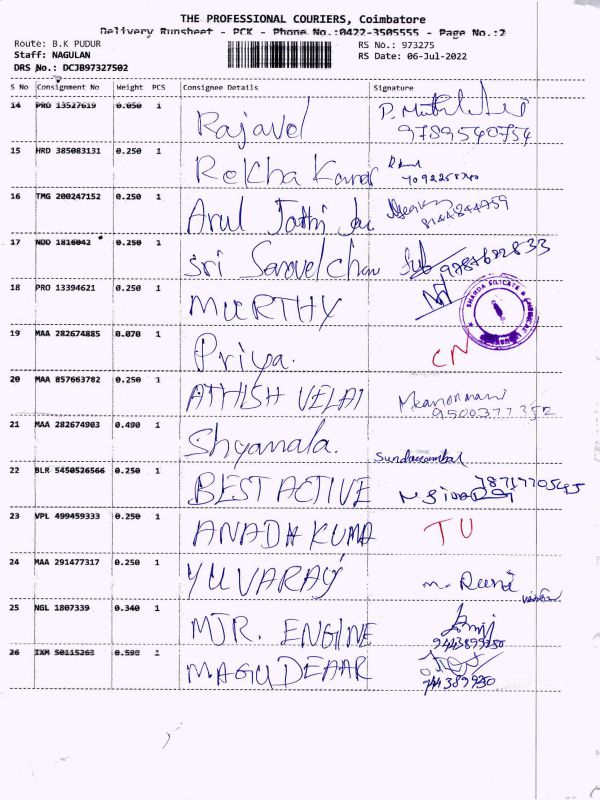 THE PROFESSIONAL COURIERS, Coimbatore
Delivery Runsheet - PCK - Phone No.:0422-3505555 - Page No.:2
Route: B.K PUDUR
RS No.: 973275
Staff: NAGULAN
RS Date: 06-Jul-2022
DRS No.: DCJB97327502
S No Consignment No Weight PCS Consignee Details Signature
14 PRO 13527619 0.050 1 Rajavel
9789540754
15 HRD 385083131 0.250 1 Rekha Kannar
16 TMG 200247152 0.250 1 Arul Jothi
17 NDD 1816042 0.250 1 Sri
18 PRO 13394621 0.250 1 MURTHY
19 MAA 282674885 0.070 1 Priya. CN
20 MAA 857663782 0.250 1 ATHISH VELAI
9500377352
21 MAA 282674903 0.490 1 Shyamala. Sundarambal
22 BLR 5450526566 0.250 1 BEST ACTIVE
23 VPL 499459333 0.250 1 ANADH KUMA TU
24 MAA 291477317 0.250 1 YUVARAJ
25 NGL 1807339 0.340 1 MJR. ENGINE
9443899350
26 IXM 50115263 0.590 1 MAGUDEAAR